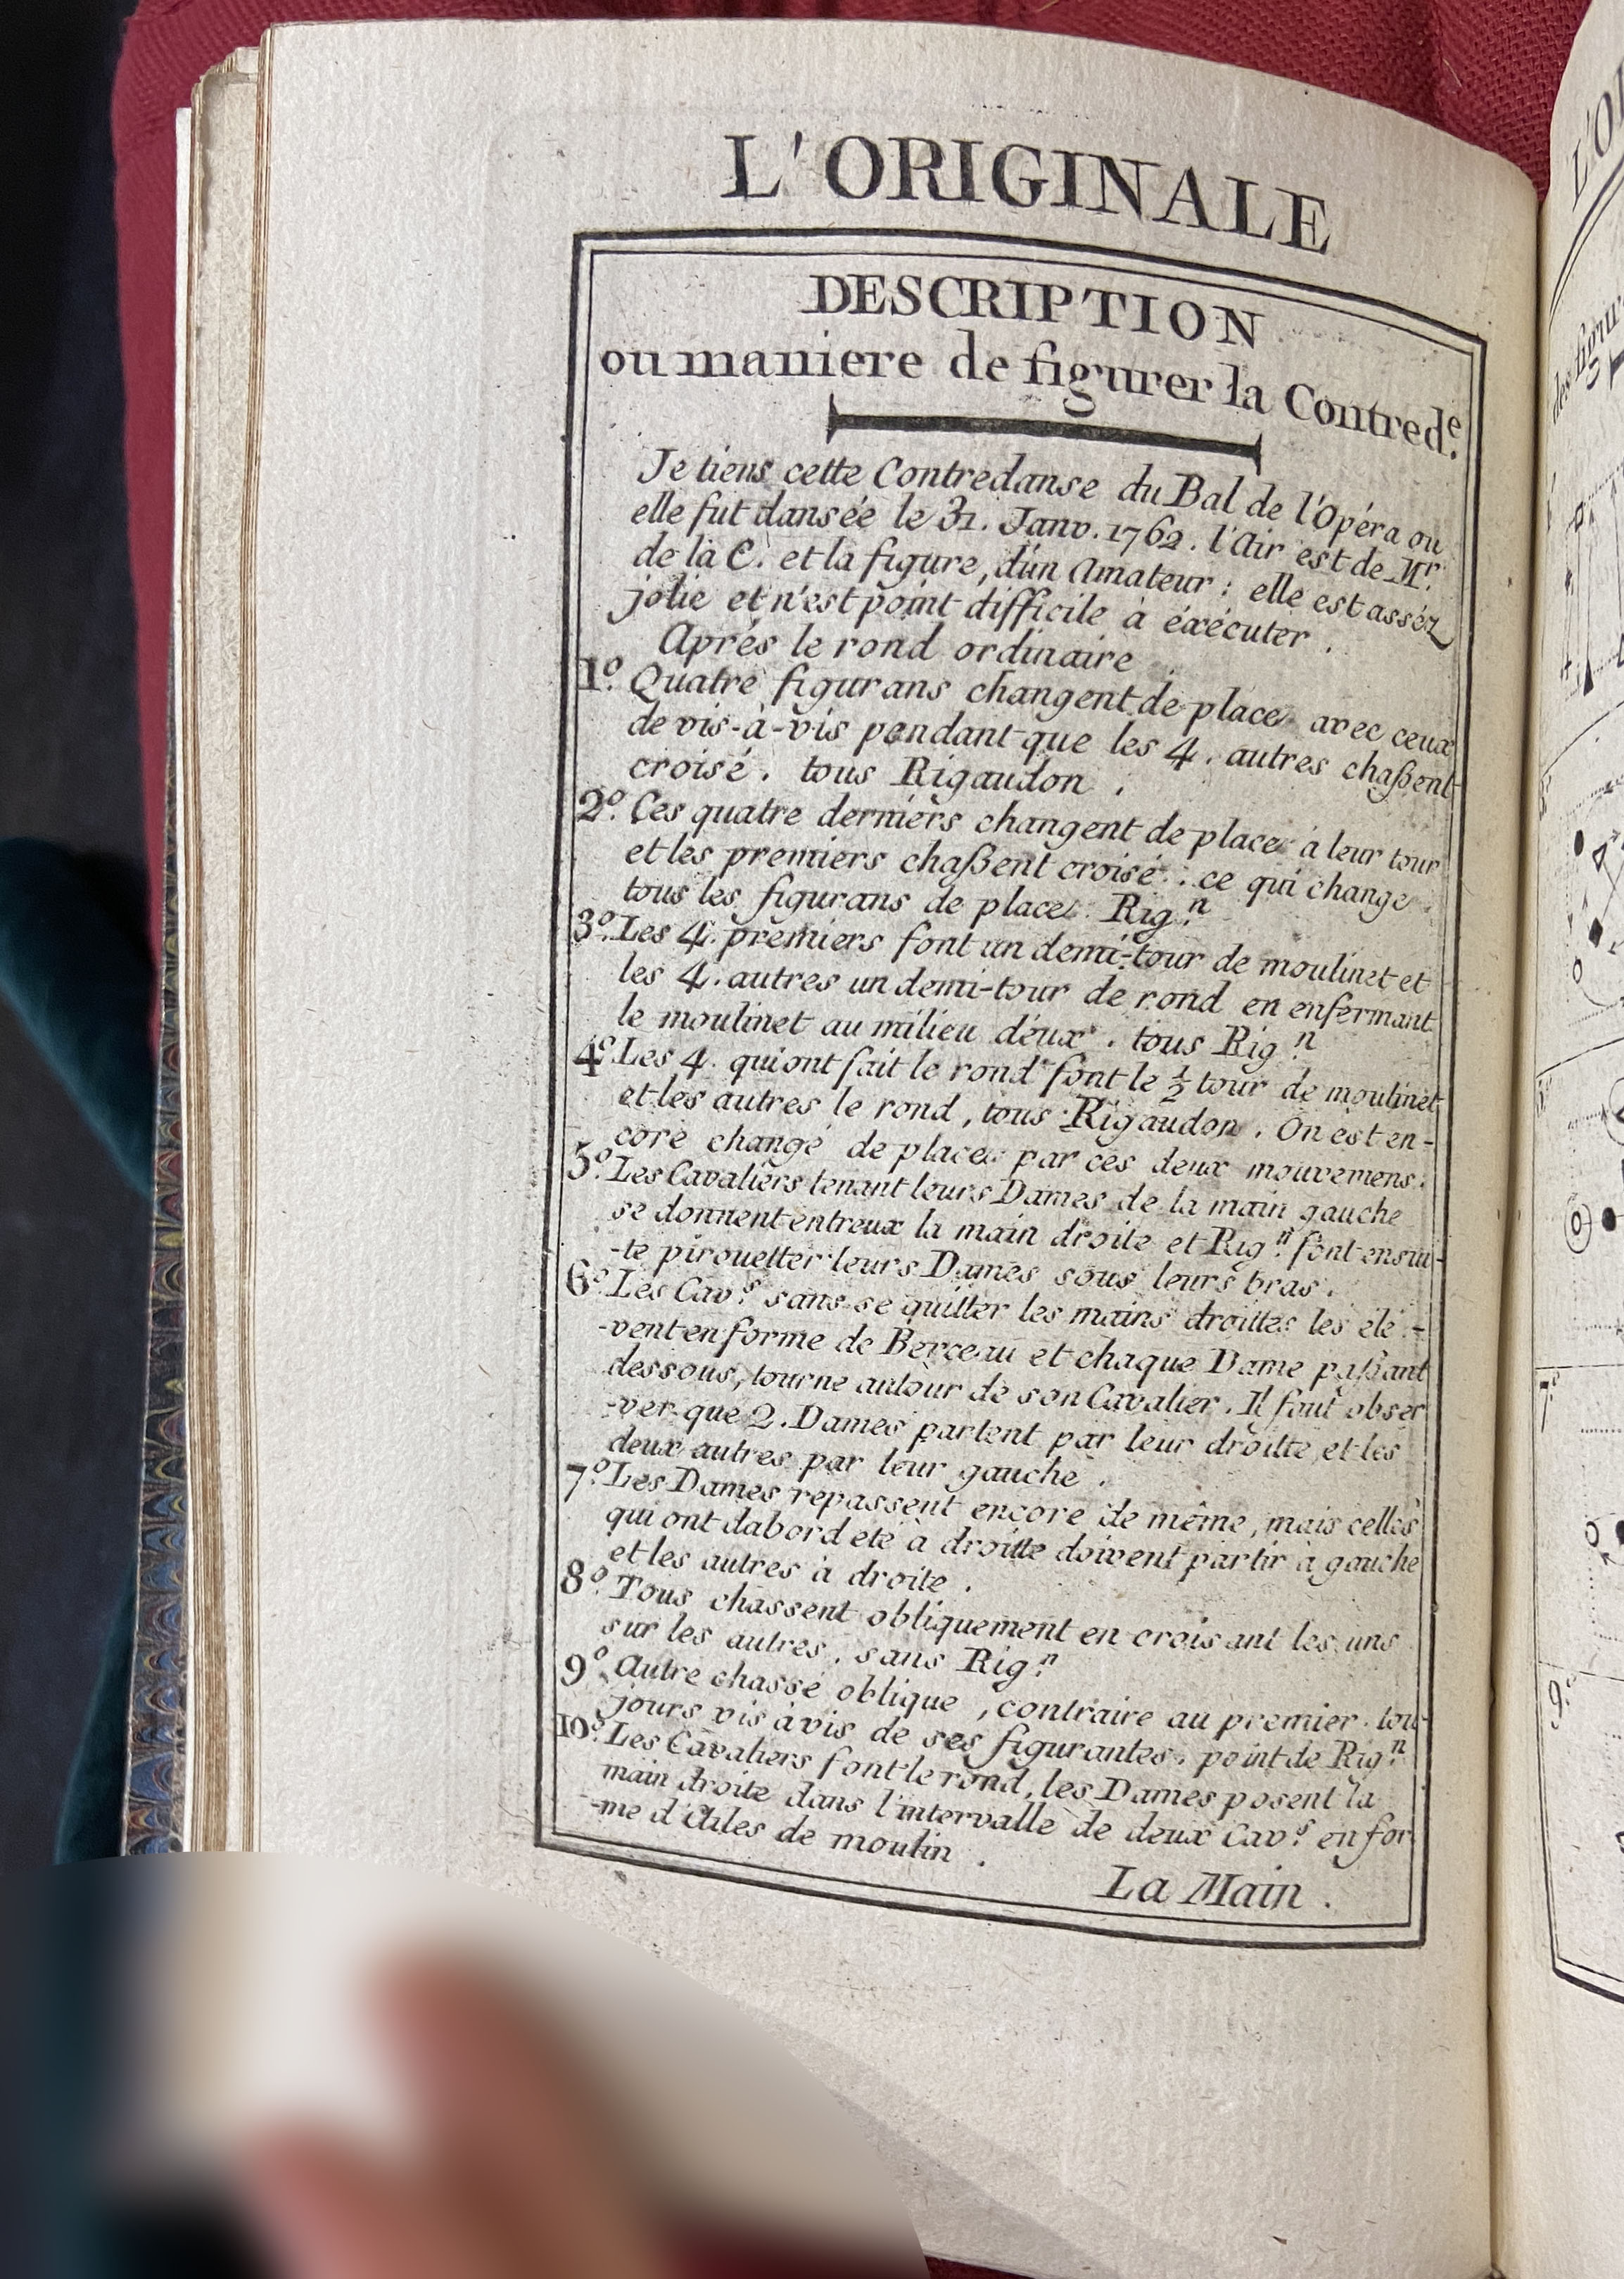 L'ORIGINALE
DESCRIPTION
ou maniere de figurer la Contred.e
Je tiens cette Contredanse du Bal de l'Opéra ou
elle fut dansée le 31. Janv. 1762. l'Air est de Mr.
de la C. et la figure, d'un Amateur; elle est asséz
jolie et n'est point difficile à éxécuter.
Aprés le rond ordinaire
1.o Quatre figurans changent de place avec ceux
de vis-à-vis pendant que les 4. autres chaßent
croisé. tous Rigaudon.
2.o Ces quatre derniers changent de place à leur tour
et les premiers chaßent croisé. ce qui change
tous les figurans de place. Rig.n
3.o Les 4. premiers font un demi-tour de moulinet et
les 4. autres un demi-tour de rond en enfermant
le moulinet au milieu d'eux. tous Rig.n
4.o Les 4. qui ont fait le rond font le ½ tour de moulinet
et les autres le rond, tous Rigaudon. On est en-
core changé de place par ces deux mouvemens.
5.o Les Cavaliers tenant leurs Dames de la main gauche
se donnent entreux la main droite et Rig.n font ensui-
-te pirouetter leurs Dames sous leurs bras.
6.o Les Cav.s sans se quitter les mains droittes les éle-
-vent en forme de Berceau et chaque Dame paßant
dessous, tourne autour de son Cavalier. Il faut obser
-ver que 2. Dames partent par leur droitte et les
deux autres par leur gauche.
7.o Les Dames repassent encore de même, mais celles
qui ont dabord eté à droitte doivent partir à gauche
et les autres à droite.
8.o Tous chassent obliquement en croisant les uns
sur les autres. sans Rig.n
9.o Autre chassé oblique, contraire au premier. tou-
jours vis à vis de ses figurantes. point de Rig.n
10.o Les Cavaliers font le rond, les Dames posent la
main droite dans l'intervalle de deux Cav.s en for
-me d'Ailes de moulin.
La Main.